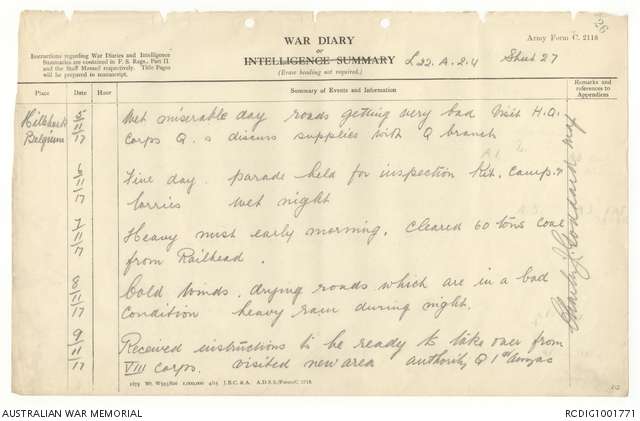 26
WAR DIARY
or
INTELLIGENCE SUMMARY
(Erase heading not required.)
Army Form C. 2118
L 22. A. 2.4 Sheet 27
Instructions regarding War Diaries and Intelligence
Summaries are contained in F. S. Regs., Part II
and the Staff Manual respectively. Title Pages
will be prepared in manuscript.
Place Date Hour Summary of Events and Information Remarks and
references to
Appendices
Belgium
5/11/17 Wet miserable day roads getting very bad Visit H.Q.
Corps Q. discuss supplies with Q branch
6/11/17 Fine day. parade held for inspection kit. camp &
lorries wet night
7/11/17 Heavy mist early morning. cleared 60 tons coal
from Railhead.
8/11/17 Cold winds. drying roads which are in a bad
condition heavy rain during night.
9/11/17 Received instructions to be ready to take over from
VIII Corps. visited new area authority Q 1st Anzac
Goddard Maj
1875 Wt. W593/826 1,000,000 4/15 J.B.C. & A. A.D.S.S./Forms/C. 2118.
AUSTRALIAN WAR MEMORIAL
RCDIG1001771